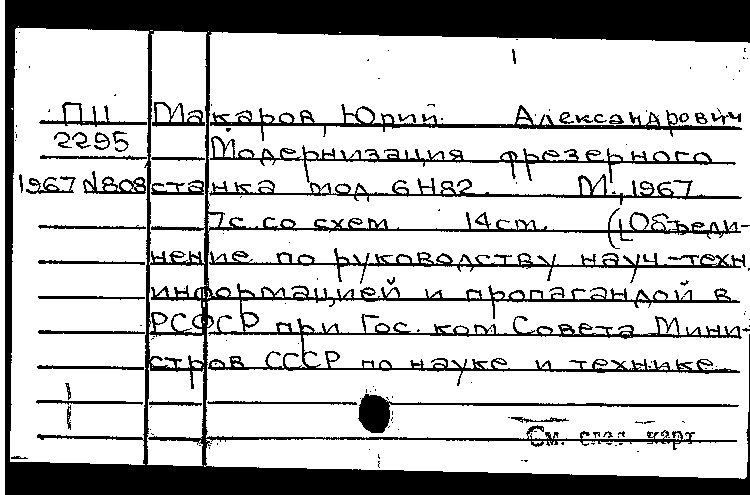 П11 Макаров, Юрий Александрович
2295 Модернизация фрезерного
1967 N808 станка мод. 6Н82. М., 1967
7с. со схем. 14см. (Объеди-
нение по руководству науч.-техн.
информацией и пропагандой в
РСФСР при Гос. ком. Совета Мини-
стров СССР по науке и технике
См. след. карт.